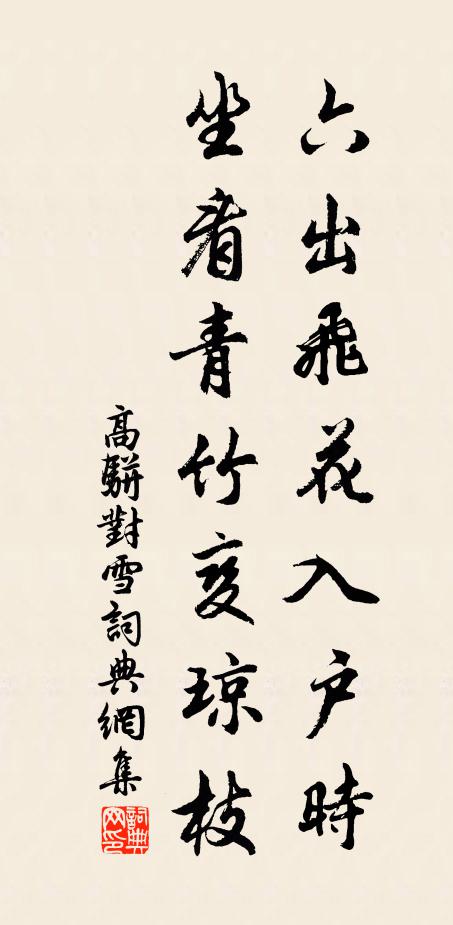 六出飛花入户時
坐看青竹变瓊枝
高駢對雪詞典網集
詞典網印